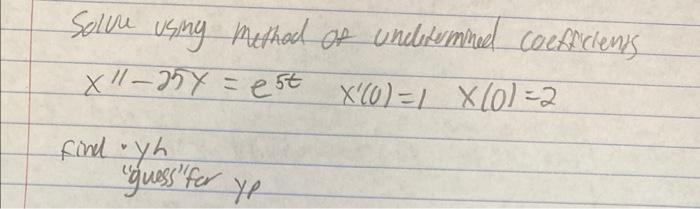 Solve using method of undetermined coefficients
x'' - 25x = e^5t x'(0) = 1 x(0) = 2
find • yh
"guess" for yp